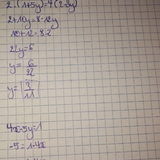 2·(1+5y)=4(2-3y)
2+10y=8-12y
10+12=8-2
22y=6
y=6/22
y=3/11
4x-5y=1
-5=1-4x